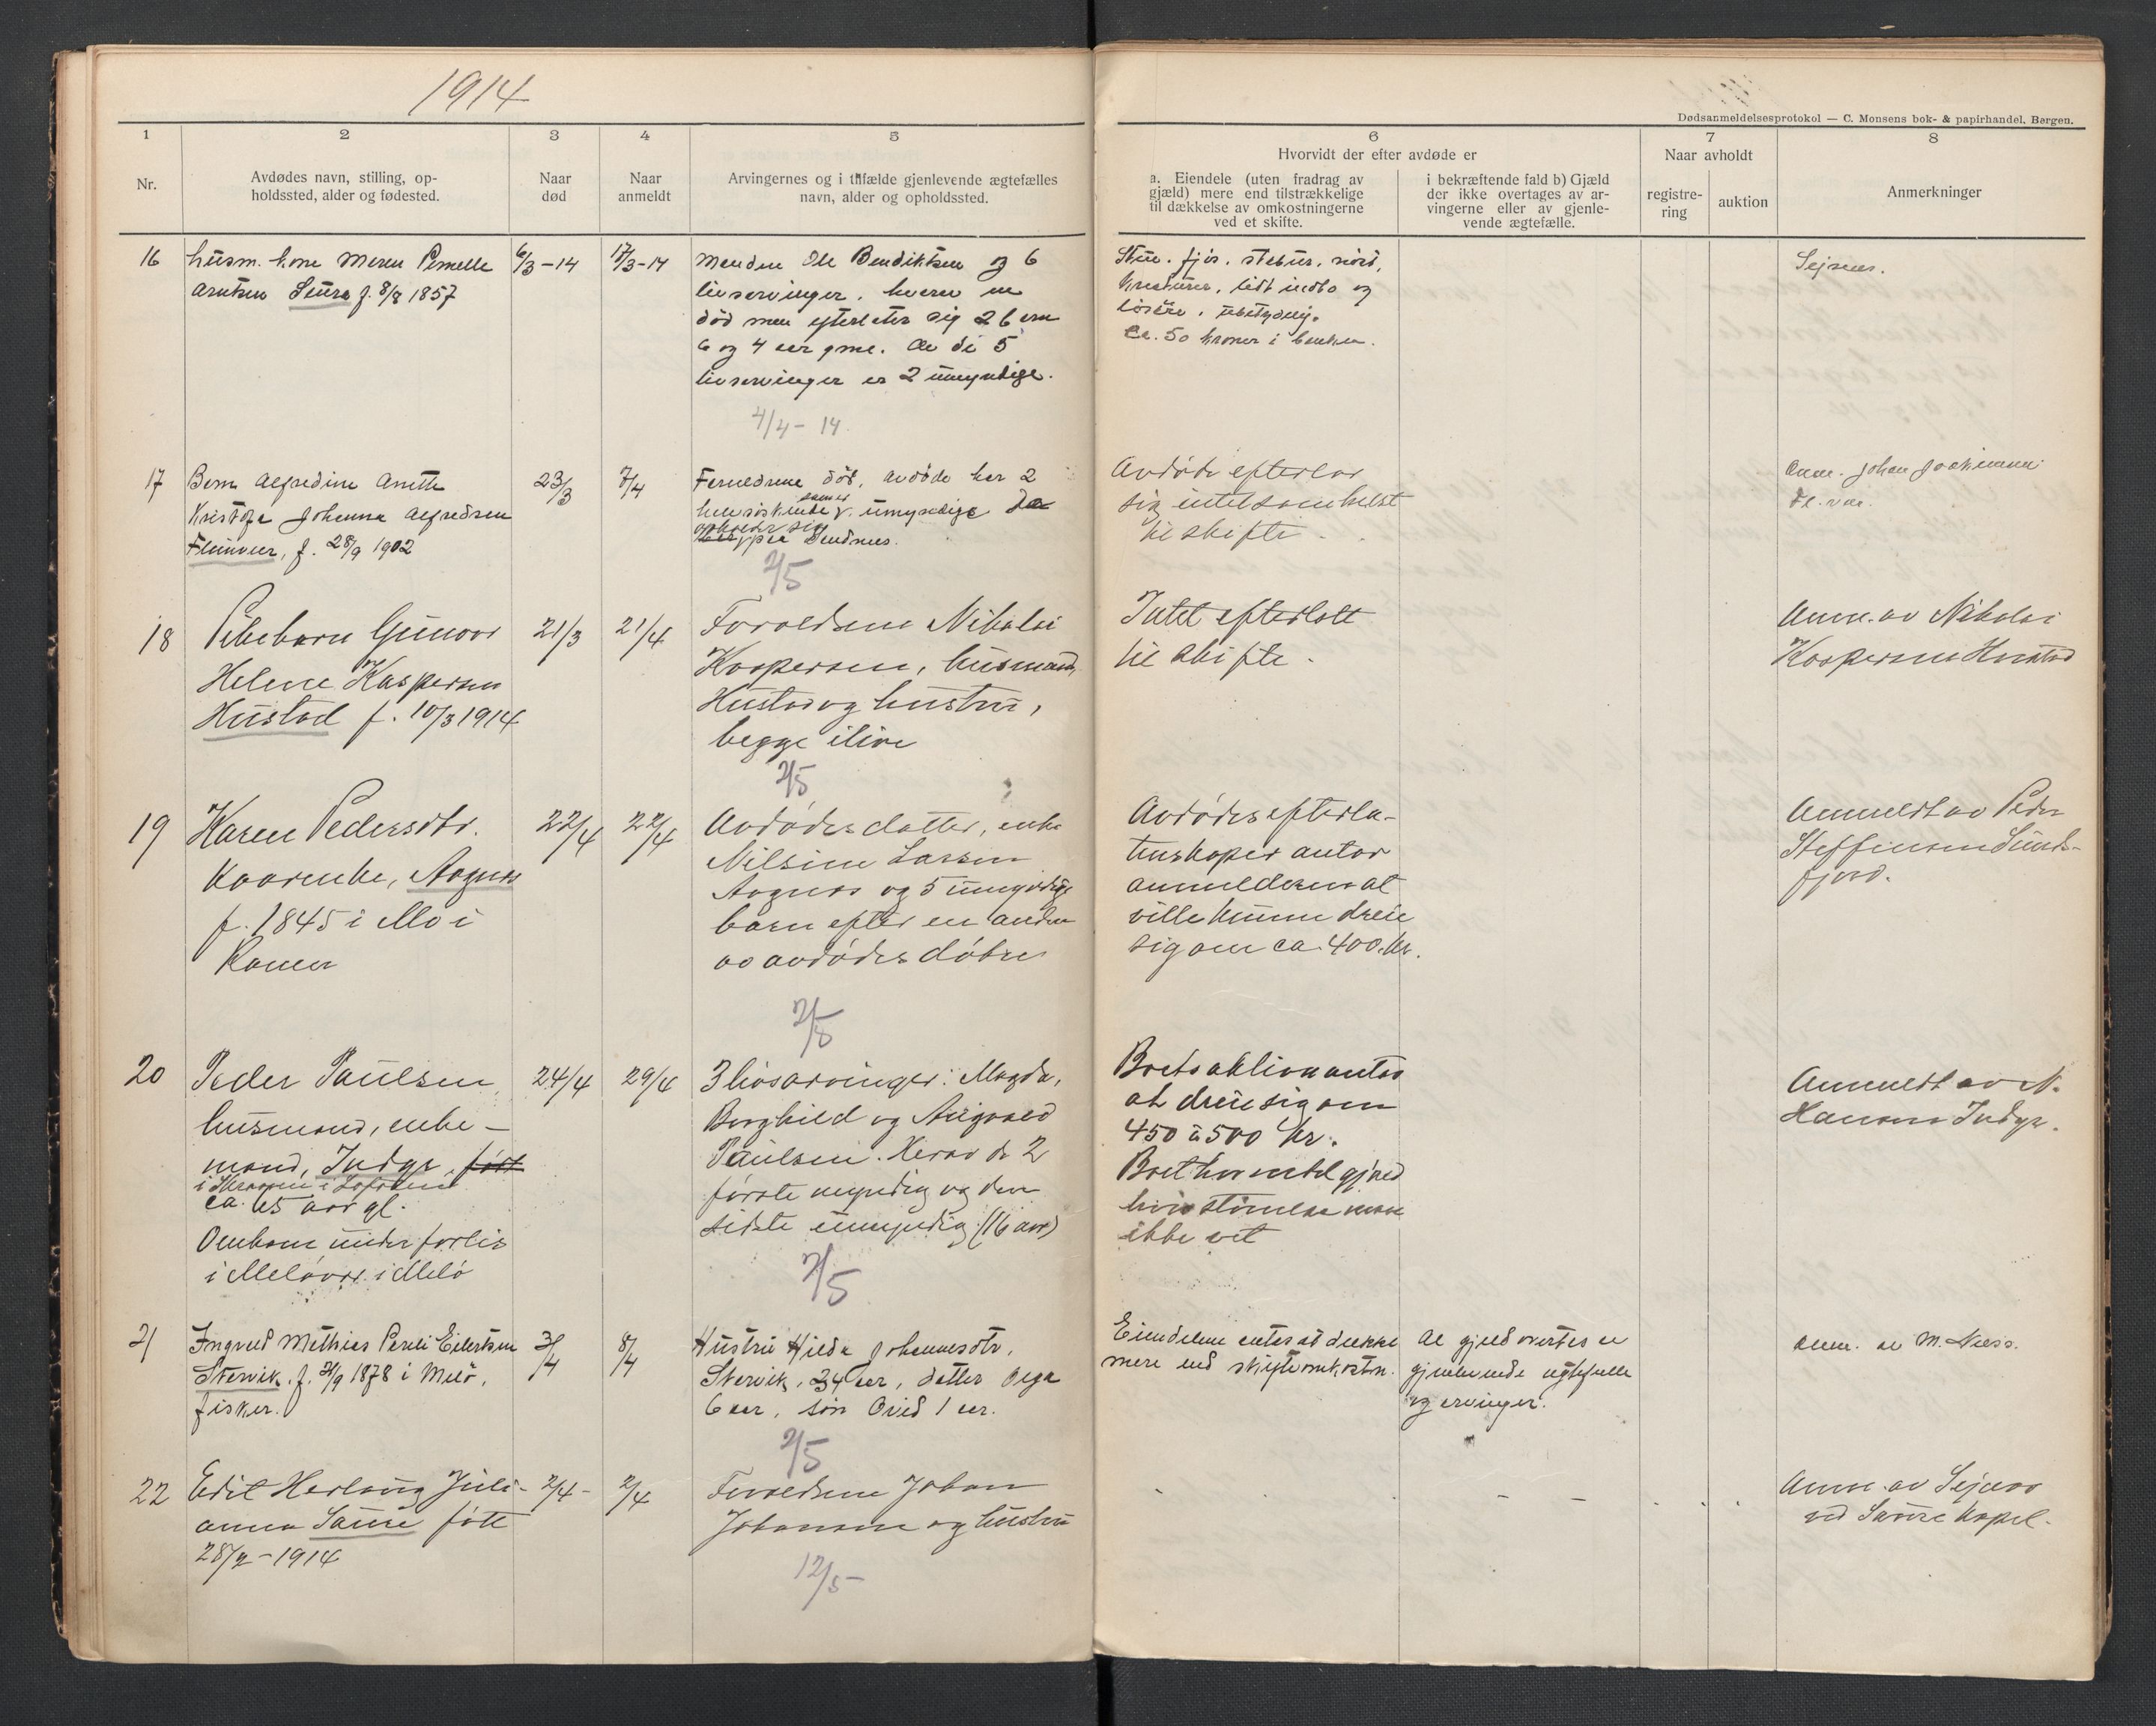 1914
Dødsanmeldelsesprotokol — C. Monsens bok- & papirhandel, Bergen.
1 2 3 4 5 6 7 8
Nr.
Avdødes navn, stilling, op-
holdssted, alder og fødested.
Naar
død
Naar
anmeldt
Arvingernes og i tilfælde gjenlevende ægtefælles
navn, alder og opholdssted.
Hvorvidt der efter avdøde er
a. Eiendele (uten fradrag av
gjæld) mere end tilstrækkelige
til dækkelse av omkostningerne
ved et skifte.
i bekræftende fald b) Gjæld
der ikke overtages av ar-
vingerne eller av gjenle-
vende ægtefælle.
Naar avholdt
registre-
ring
auktion
Anmerkninger
16
husm. kone Maren Pernelle
Arntsen Saura f. 8/8 1857
6/3-14
17/3-14
Manden Ole Bendiktsen og 6
livsarvinger, hvorav en
död men efterlater sig 2 barn
6 og 4 aar gml. Av de 5
livsarvinger er 2 umyndige.
4/4-14
Stue, fjös, stabur, nöst,
kreaturer, lidt indbo og
lösöre, ubetydelig.
Ca. 50 kroner i banken.
17
Barn Alfredine Anette
Kristofa Johanna Alfredsen
Fleinvær, f. 28/9 1902
23/3
7/4
Forældrene död, avdöde har 2
helsöskende, umyndige
opholder sig
paa Sandnes.
2/5
Avdöde efterlar
sig intetsomhelst
til skifte.
Anm. Johan Joakimsen
Fl.vær.
18
Pikebarn Gunvor
Helene Kaspersen
Hustad f. 10/3 1914
21/3
21/4
Forældrene Nikolai
Kaspersen, husmand,
Hustad og hustru,
begge ilive
2/5
Intet efterlatt
til skifte.
Anm. av Nikolai
Kaspersen Hustad
19
Karen Pedersdtr.
Kaarenke,
f. 1845 i Mo i
Ranen
22/4
22/4
Avdödes datter, enke
Nilsine Larsen
og 5 umyndige
barn efter en anden
av avdödes dötre
2/5
Avdödes efterla-
tenskaper antar
anmelderen at
ville kunne dreie
sig om ca. 400 kr.
Anmeldt av Peder
Steffensen Sund-
fjord.
20
Peder Paulsen,
husmand, enke-
mand, Indyr, född
i Lofoten
ca. 65 aar gl.
Omkom under forlis
i Melövær i Melö
24/4
29/4
3 livsarvinger: Magda,
Borghild og Augvald
Paulsen. Herav de 2
förste myndig og den
sidste umyndig (16 aar)
2/5
Boets aktiva antas
at dreie sig om
450 à 500 kr.
Boet har endel gjæld
hvis störrelse man
ikke vet
Anmeldt av N.
Hansen Indyr.
21
Ingvald Mathias Pareli Eilertsen
Störvik, f. 21/9 1878 i Melö,
fisker.
3/4
8/4
Hustru Hilda Johannesdtr.
Störvik, 34 aar, datter Olga
6 aar, sön Ovid 1 aar.
2/5
Eiendelene antas at dække
mere end skifteomkostn.
Al gjæld overtas av
gjenlevende ægtefælle
og arvinger.
Anm. av M. Næss.
22
Edit Herlaug Juli-
anna Saure född
28/2-1914
2/4-
2/4
Forældrene Johan
Johansen og hustru
12/5
Anm. av
ved Saura kapel.